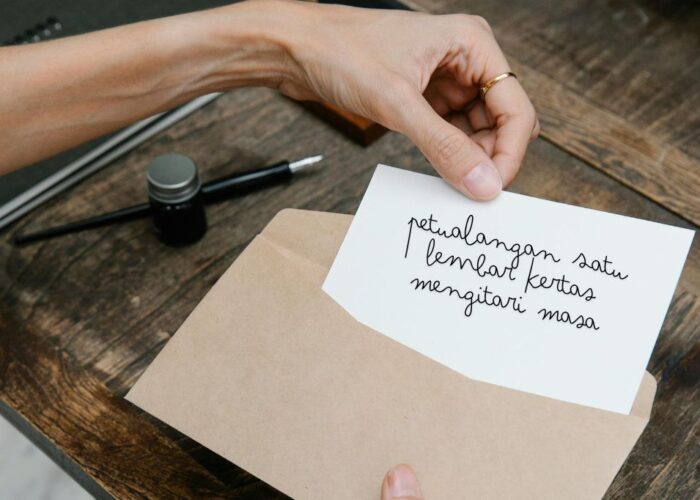 petualangan satu
lembar kertas
mengitari masa